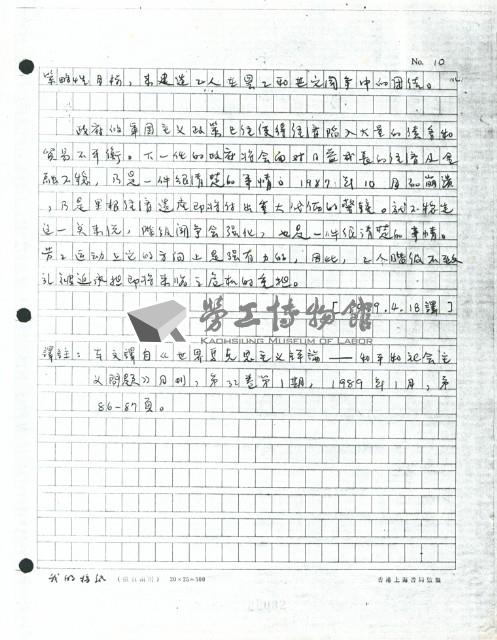 No. 10
策略性目标，来建造工人在罢工和其它闘争中的团结。
政府的军国主义政策已经使得经济陷入大量的债务和
贸易不平衡。下一任的政府将会面对日益成长的经济及金
融不稳，乃是一件很清楚的事情。1987年10月的崩溃
，乃是里根经济速度即将付出重大代价的警钟。就不稳定
这一点来说，阶级闘争会强化，也是一件很清楚的事情。
劳工运动上它的方向上是强有力的，因此，工人阶级不致
礼被迫承担即将来临之危机的重担。
[1989.4.18譯]
勞工博物館
KAOHSIUNG MUSEUM OF LABOR
譯註：本文譯自《世界马克思主义评論——和平和社会主
义問题》月刊，第32卷第1期，1989年1月，第
86-87頁。
我的稿紙 20×25=500
香港上海書局監製